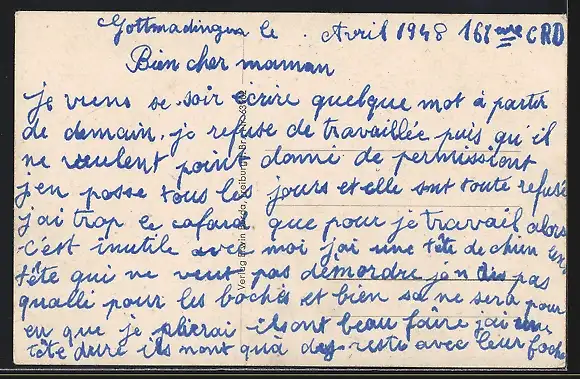 Gottmadingen le . Avril 1948 168eme CRD
Bien cher maman
je viens se soir écrire quelque mot à partir
de demain. je refuse de travaillée puis qu'il
ne veulent point donné de permissiont
j'en passe tous les jours et elle sont toute refusé
j'ai trop le cafard que pour je travail alors
c'est inutile avec moi j'ai une tête de chien
tête qui ne veut pas démordre je n dis pas
qualli pour les bochés et bien sa ne sera pour
en que je plierai ils ont beau faire j'ai une
tête dure ils nont quà reste avec leur
Verlag Erwin Freiburg Br.